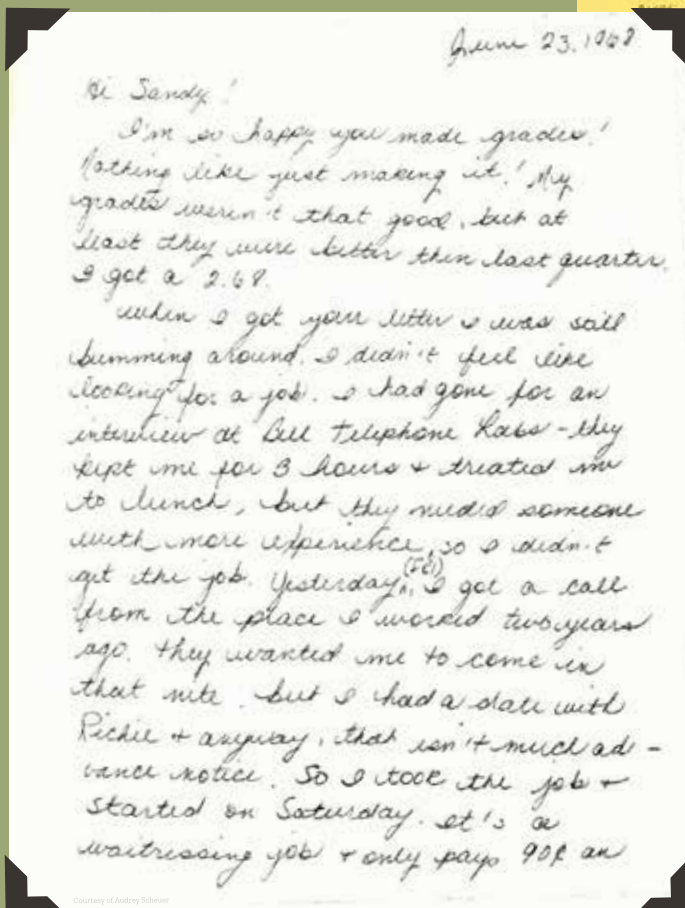 June 23, 1968
Hi Sandy!
I'm so happy you made grades!
Nothing like just making it! My
grades weren't that good, but at
least they were better then last quarter.
I got a 2.68.
When I got your letter I was still
bumming around. I didn't feel like
looking for a job. I had gone for an
interview at Bell Telephone Labs - they
kept me for 3 hours + treated me
to lunch, but they needed someone
with more experience, so I didn't
get the job. Yesterday, (Fri) I got a call
from the place I worked two years
ago. They wanted me to come in
that nite, but I had a date with
Richie + anyway, that isn't much ad-
vance notice. So I took the job +
started on Saturday. It's a
waitressing job + only pays 90¢ an
Courtesy of Audrey Scheuer